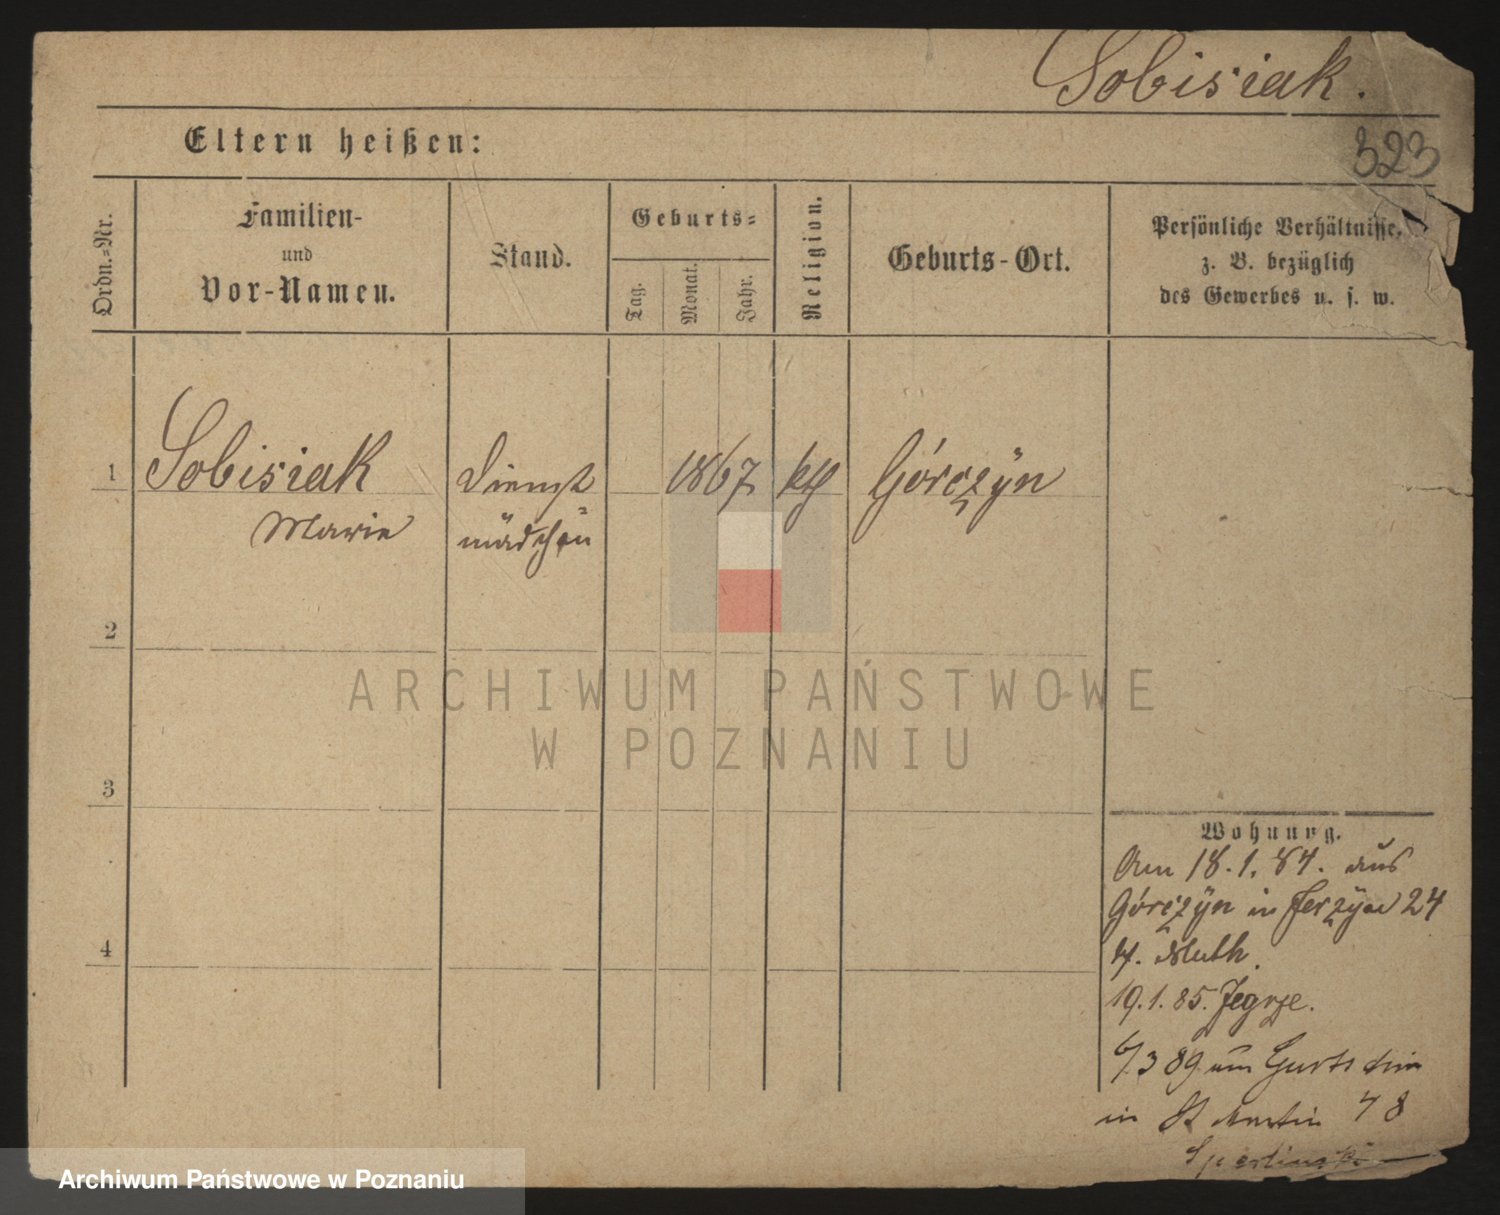 Sobisiak.
Eltern heißen:
323
Ordn.-Nr.
Familien-
und
Vor-Namen.
Stand.
Geburts-
Tag.
Monat.
Jahr.
Religion.
Geburts-Ort.
Persönliche Verhältnisse,
z. B. bezüglich
des Gewerbes u. s. w.
1
Sobisiak
Marie
Dienst
mädchen
1867
kth
Górczÿn
2
3
4
ARCHIWUM PAŃSTWOWE
W POZNANIU
Wohnung.
Am 18.1.84. aus
Górczÿn in Jerzÿce 24
19.1.85. Jegrze.
6/3 89
in St Martin 78
Archiwum Państwowe w Poznaniu